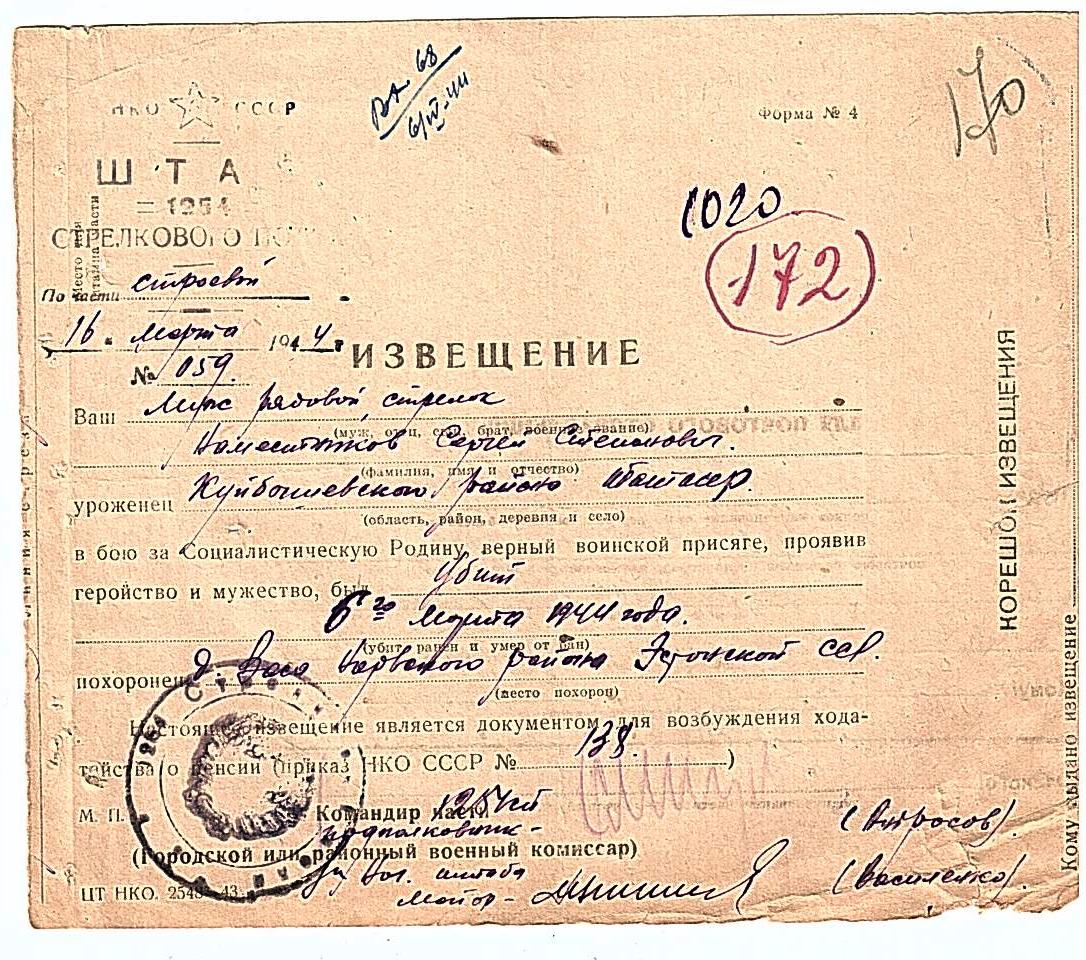 НКО СССР
Форма № 4
170
вх 68
6/IV-44
ШТА
1254
СТРЕЛКОВОГО
1020
172
Место для
штампа части
По части строевой
16 " Марта 1944 г
№ 059.
ИЗВЕЩЕНИЕ
Ваш рядовой, стрелок
(муж, отец, сын, брат, военное звание)
Сергей Степанович.
(фамилия, имя и отчество)
уроженец Куйбышевского района
(область, район, деревня и село)
в бою за Социалистическую Родину, верный воинской присяге, проявив
геройство и мужество, был убит
6го Марта 1944 года.
(убит, ранен и умер от ран)
похоронен д. Нарвского района Эстонской ССР.
(место похорон)
Настоящее извещение является документом для возбуждения хода-
тайства о пенсии (приказ НКО СССР № 138.)
М. П.
Командир части 1254 сп
подполковник -
(Городской или районный военный комиссар)
нач. штаба
Майор -
(Василенко).
ЦТ НКО. 43
КОРЕШОК ИЗВЕЩЕНИЯ
Кому выдано извещение
Линия отреза